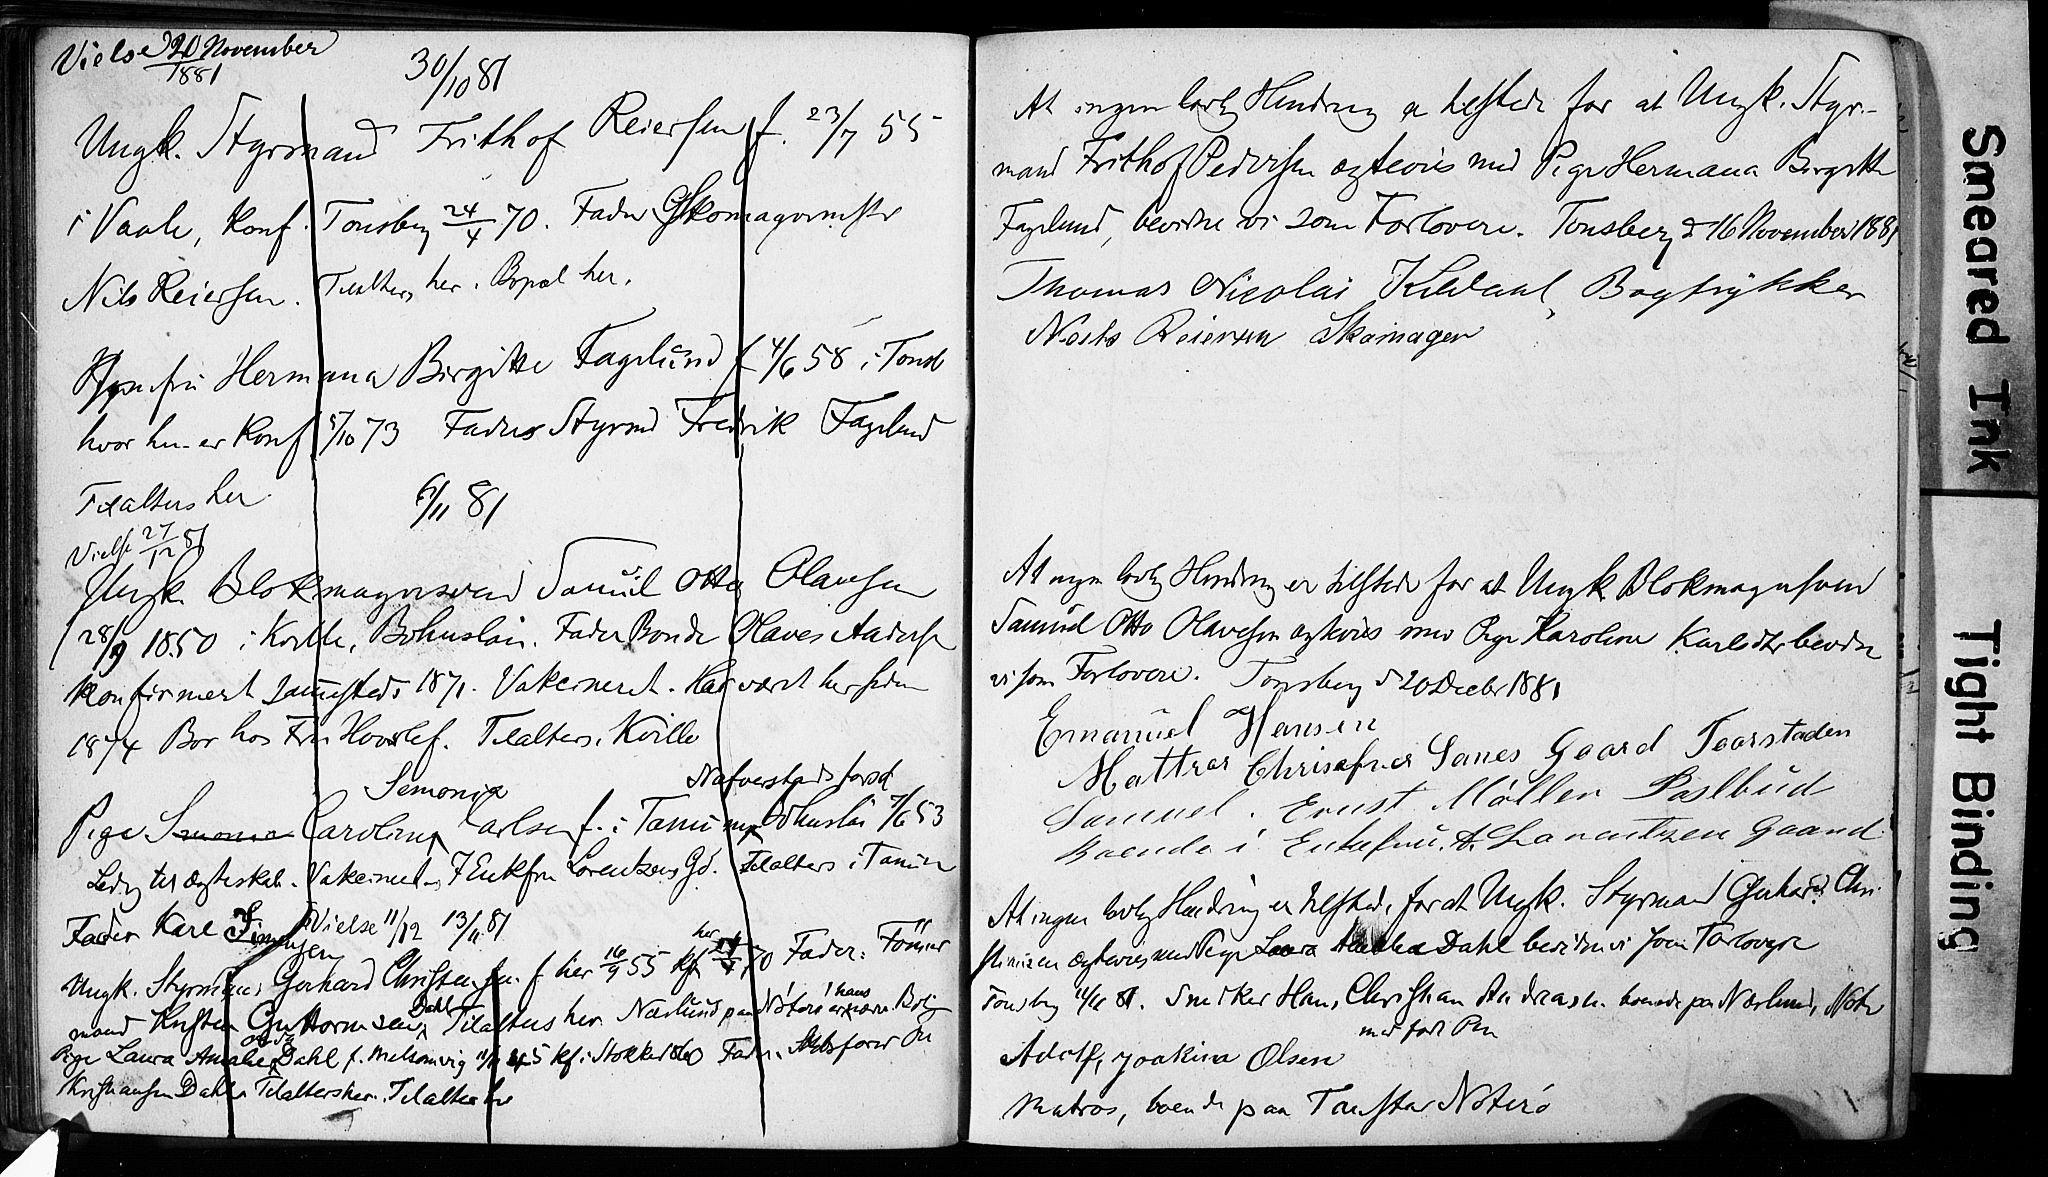 Vielse 20 November
1881
30/10 81
Ungk. Styrmand Frithof Reiersen f. 23/7 55
i Vaale, Konf. Tonsberg 24/4 70. Fader Skomagermstr
Nils Reiersen. Tilalters her. Bopæl her.
Jomfru Hermana Birgitte Fagelund f 4/6 58 i Tonsb
hvor hun er Konf 5/10 73 Fader Styrmd Fredrik Fagelund
Tilalters her.
6/11 81
Vielse 27/12 81
Ungk. Blokmagersvend Samuil Otto Olavesen
28/9 1850 i Kville, Bohuslän. Fader Bonde Olaves Anderss
Konfirmert sammesteds 1871. Vakcineret. Har været her siden
1874 Bor hos Fru Tilalters. Kville
Semonia
Pige Caroline Carlsen f. i Tanum Bohuslän 7/6 53
Ledig til ægteskab. Vakcineret. Enkefru Lorentzens Gd. Tilalters i Tanum
Fader Karl Simonsen
Vielse 11/12 13/11 81
Ungk. Styrmand Gerhard Christensen f her 16/9 55 kf her 70 Fader: Tømmer
mand Kristen Guttormsen Tilalters her Nærlund paa Nøterø
Dahl
Pige Laura Amalie Dahl f. Melsomvig 45 kf i Stokke 1860 Fader. Skibsfører
Kristiansen Dahl. Tilalters her. Tilalters her
At ingen lovlig Hindring er tilstede for at Ungk. Styr-
mand Frithof Pedersen ægtevies med Pige Hermana Birgitte
Fagelund, bevidne vi som Forlovere. Tonsberg d 16 November 1881
Thomas Nicolai Kildahl, Bogtrykker
Neils Reiersen Skomager
At ingen lovlig Hindring er tilstede for at Ungk. Blokmagersvend
Samuel Otto Olavesen ægtevies med Pige Karoline Karlsdtr bevidne
vi som Forlovere. Tonsberg d 20 Decbr 1881
Emanuel Hansen
Mattros Sanes Gaard Taarstaden
Samuel. Ernst Møller Postbud
Boende i Enkefru. A. Lorentzen Gaard.
At ingen lovlig Hindring er tilstede for at Ungk. Styrmand Gerhard Chri-
stensen ægtevies med Pige Laura Amalia Dahl bevidne vi som Forlovere
Tonsberg 81. Snecker Hans Christian Andreasen boende paa Nærlund, Nøte
med ført Pen
Adolf, Joakim Olsen
Matros, boende paa Nøterø
Smeared Ink
Tight Binding